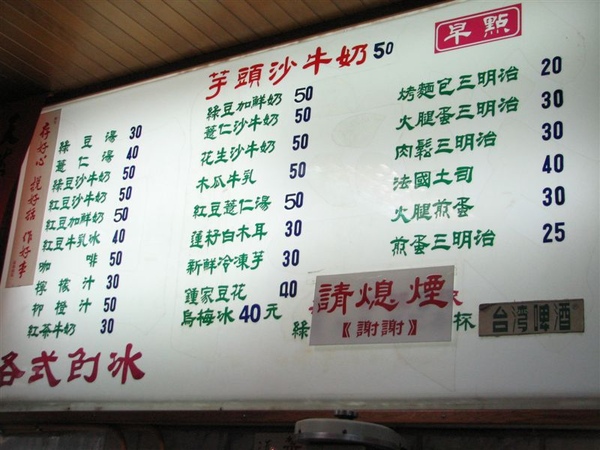 芋頭沙牛奶 50
早點
存好心 說好話 作好事
綠豆湯 30
薏仁湯 40
綠豆沙牛奶 50
紅豆沙牛奶 50
紅豆加鮮奶 50
紅豆牛乳冰 40
咖啡 50
檸檬汁 30
柳橙汁 50
紅茶牛奶 30
綠豆加鮮奶 50
薏仁沙牛奶 50
花生沙牛奶 50
木瓜牛乳 50
紅豆薏仁湯 50
蓮籽白木耳 30
新鮮冷凍芋 30
鍾家豆花 40
烏梅冰 40元
烤麵包三明治 20
火腿蛋三明治 30
肉鬆三明治 30
法國土司 40
火腿煎蛋 30
煎蛋三明治 25
綠
杯
請熄煙
《謝謝》
台湾啤酒
各式刨冰